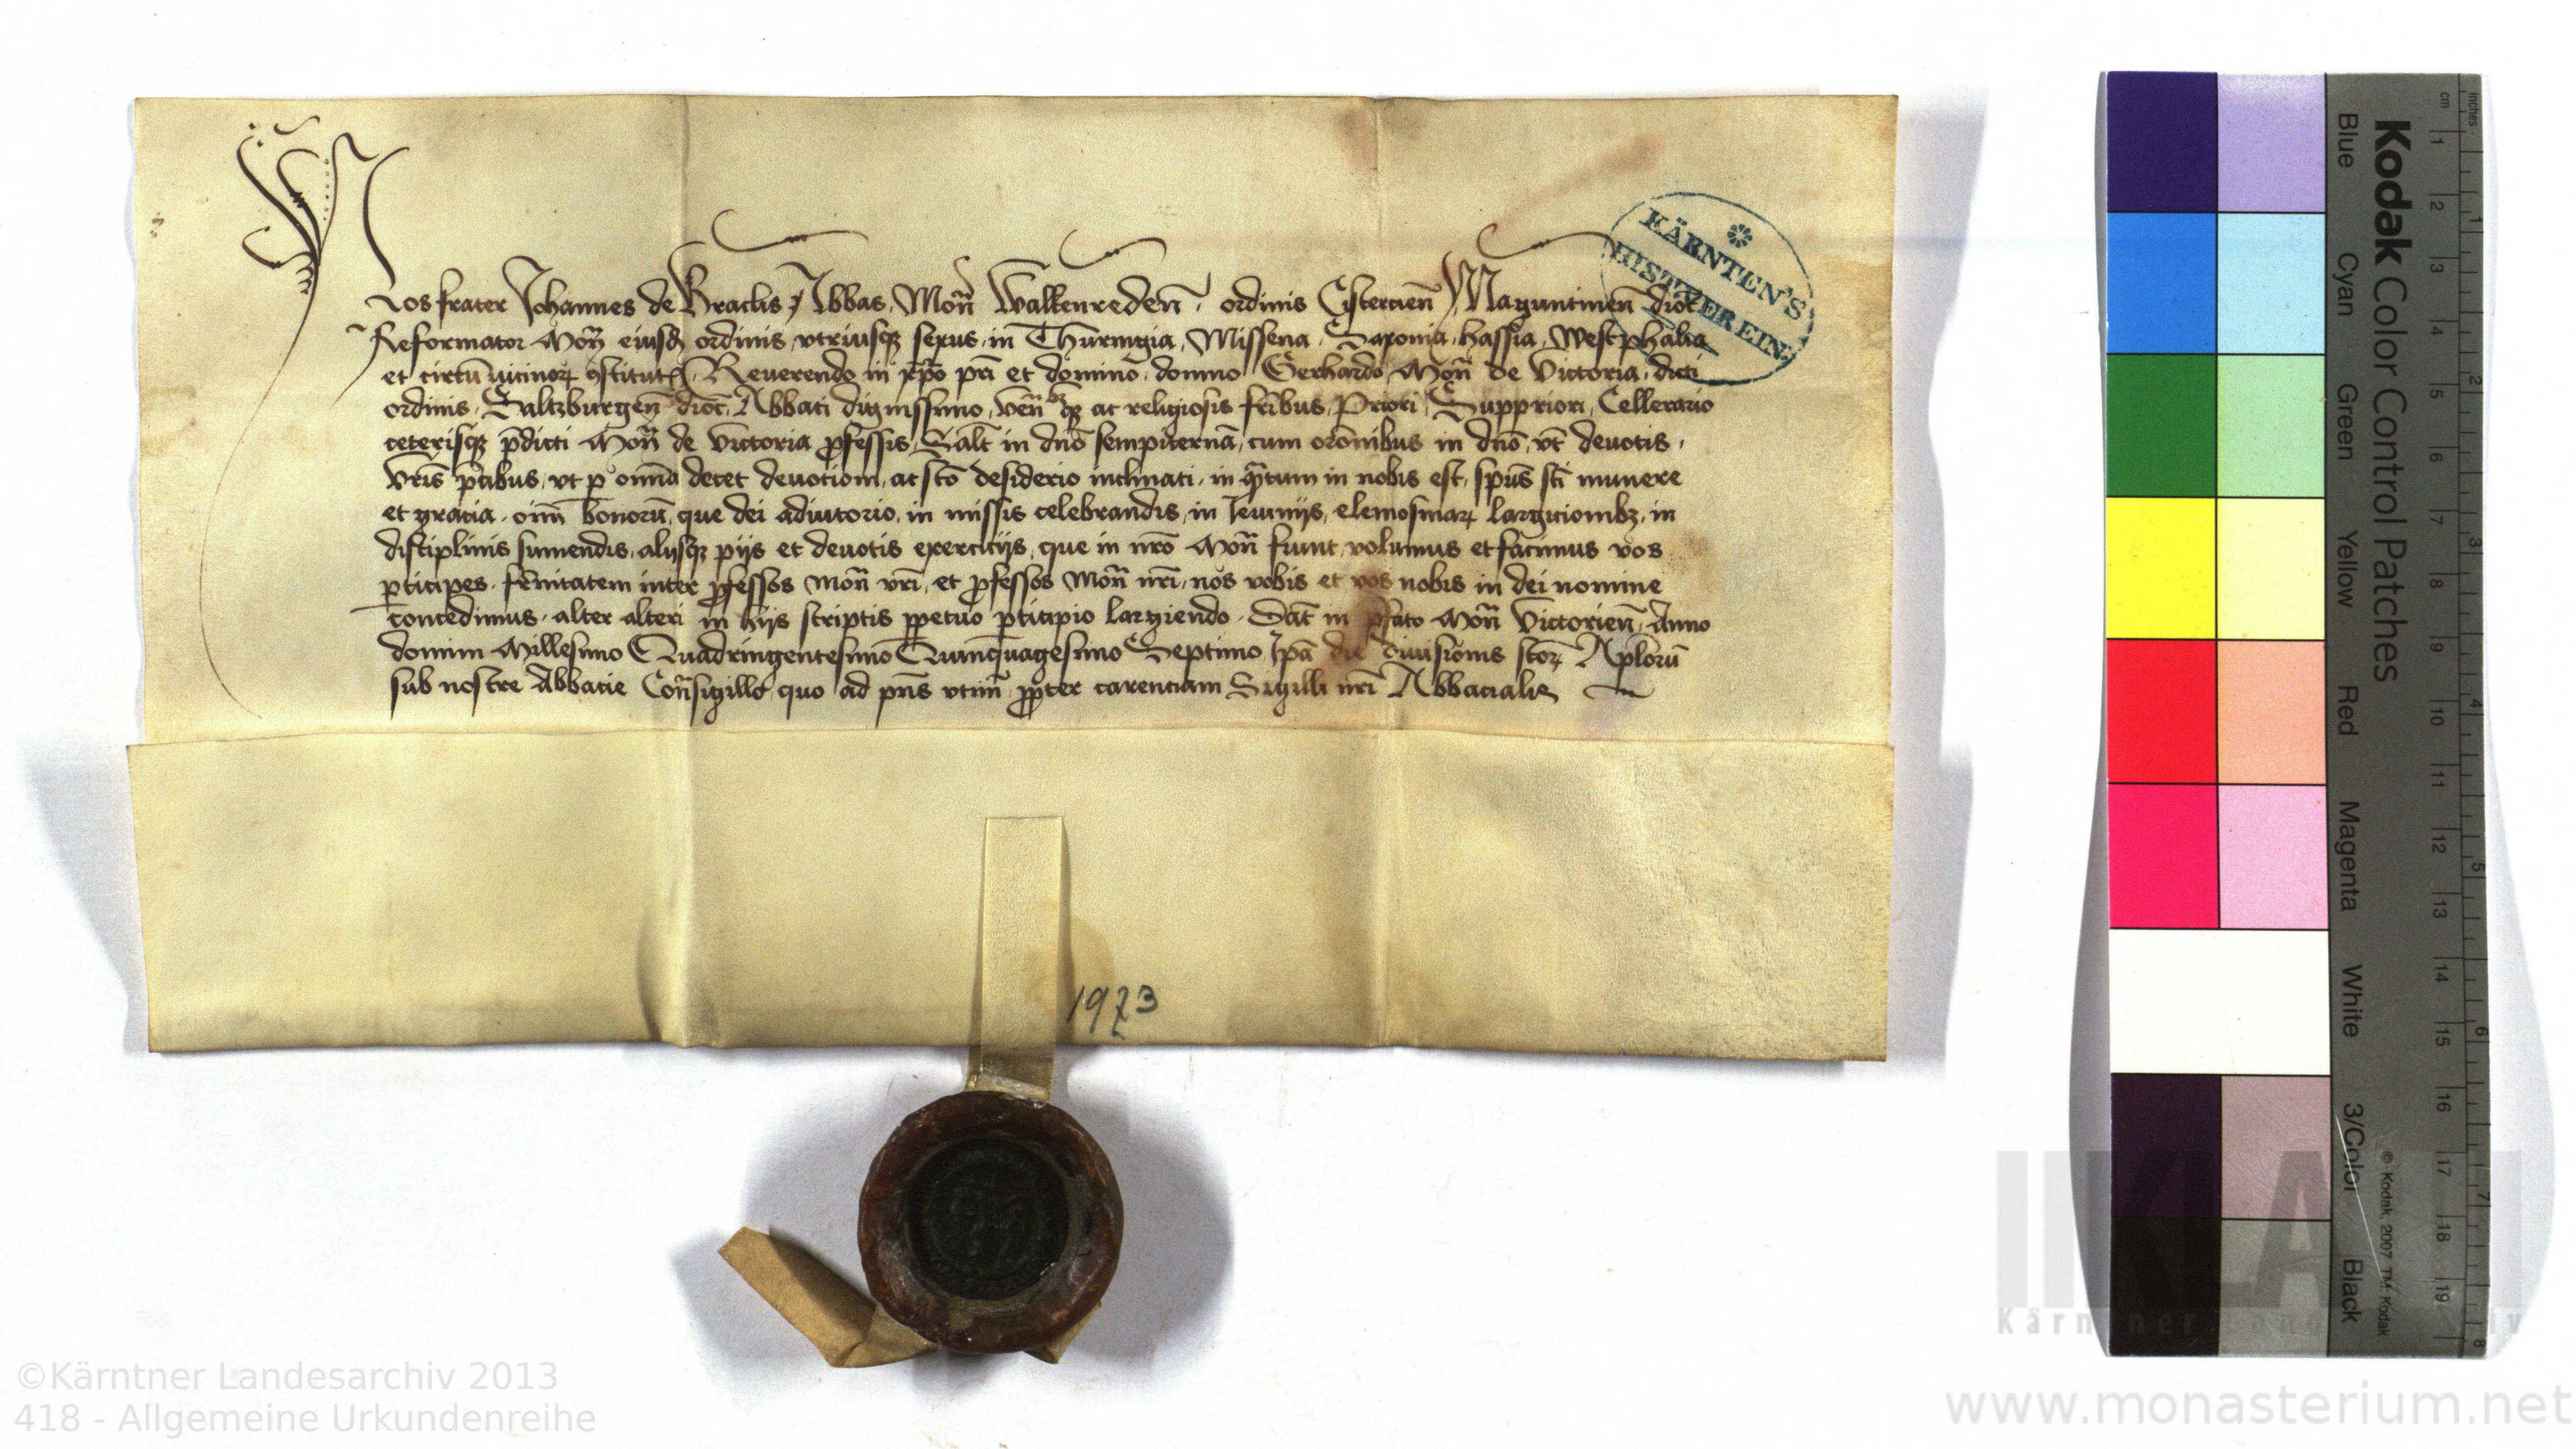 Nos frater Johannes de Braclis Abbas Mon̄ Walkenreden̄ ordinis Cistercien̄ Maguntinen̄ dioc̄
Reformator Mon̄ eiusdē ordinis vtriusqʒ sexus in Thuringia, Missena, Saxonia, hassia, Westphalia
et circū uicinoꝝ ꝯstitut Reuerendo in xp̄o pr̄i et domino domno Gerhardo Mon̄ de Victoria dicti
ordinis Saltzburgen̄ dioc̄ Abbati dignissimo, ven̄bʒqʒ ac religiosis fr̄ibus, Priori, Suppriori, Cellerario
ceterisqʒ p̄dicti Mon̄ de Victoria ꝓfessis, Salt̄ in dn̄o sempiternā, cum orōnibus in dn̄o vt̄ deuotis
vr̄is p̄cibus, vt p omnia decet deuotiom, ac sc̄o desiderio inclinati, in qᷓntum in nobis est, sp̄us sc̄i munere
et gracia, oīm bonorū, que dei adiutorio, in missis celebrandis, in Jeiunijs, elemosinaꝝ largicionibʒ, in
disciplinis sumendis, alijsqʒ pijs et deuotis exercicijs, que in nr̄o Mon̄ fiunt, volumus et facimus vos
ꝑticipes, fr̄nitatem inter ꝓfessos Mon̄ vr̄i, et ꝓfessos Mon̄ nr̄i, nos vobis et vos nobis in dei nomine
concedimus, alter alteri in hijs scriptis ꝑpetuo ꝑticipio largiendo. Dat̄ in p̄fato Mon̄ Victorien̄, Anno
domini Millesimo Quadringentesimo Quinquagesimo Septimo Ipā die diuisionis sc̄oꝝ Apl̄orū
sub nostre Abbacie Con̄sigillo quo ad pn̄s vtim̄ ꝓpter carenciam Sigilli nr̄i Abbacialis
KÄRNTEN'S
HIST. VEREIN
1973
Kodak Color Control Patches
© Kodak, 2007 TM: Kodak
Blue Cyan Green Yellow Red Magenta White 3/Color Black
cm 1 2 3 4 5 6 7 8 9 10 11 12 13 14 15 16 17 18 19
inches 1 2 3 4 5 6 7 8
©Kärntner Landesarchiv 2013
418 - Allgemeine Urkundenreihe
www.monasterium.net